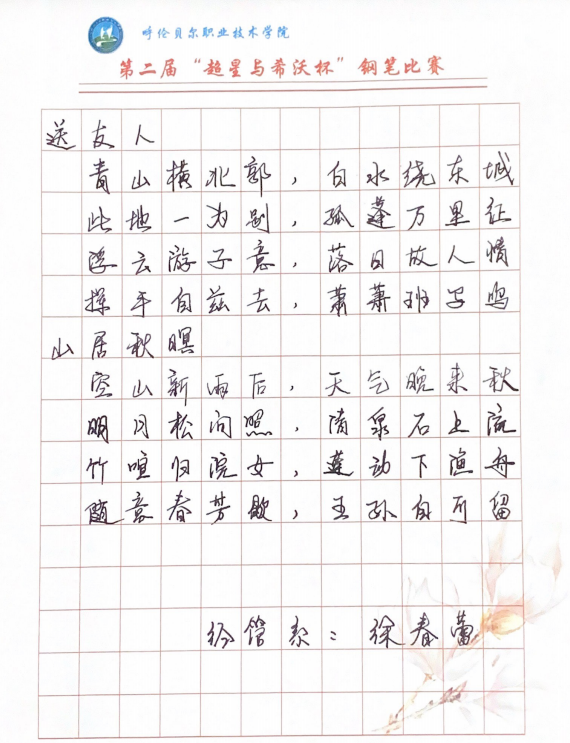 呼伦贝尔职业技术学院
第二届“超星与希沃杯”钢笔比赛
送友人
青山横北郭，白水绕东城
此地一为别，孤蓬万里征
浮云游子意，落日故人情
挥手自兹去，萧萧班马鸣
山居秋暝
空山新雨后，天气晚来秋
明月松间照，清泉石上流
竹喧归浣女，莲动下渔舟
随意春芳歇，王孙自可留
经管系：徐春蕾